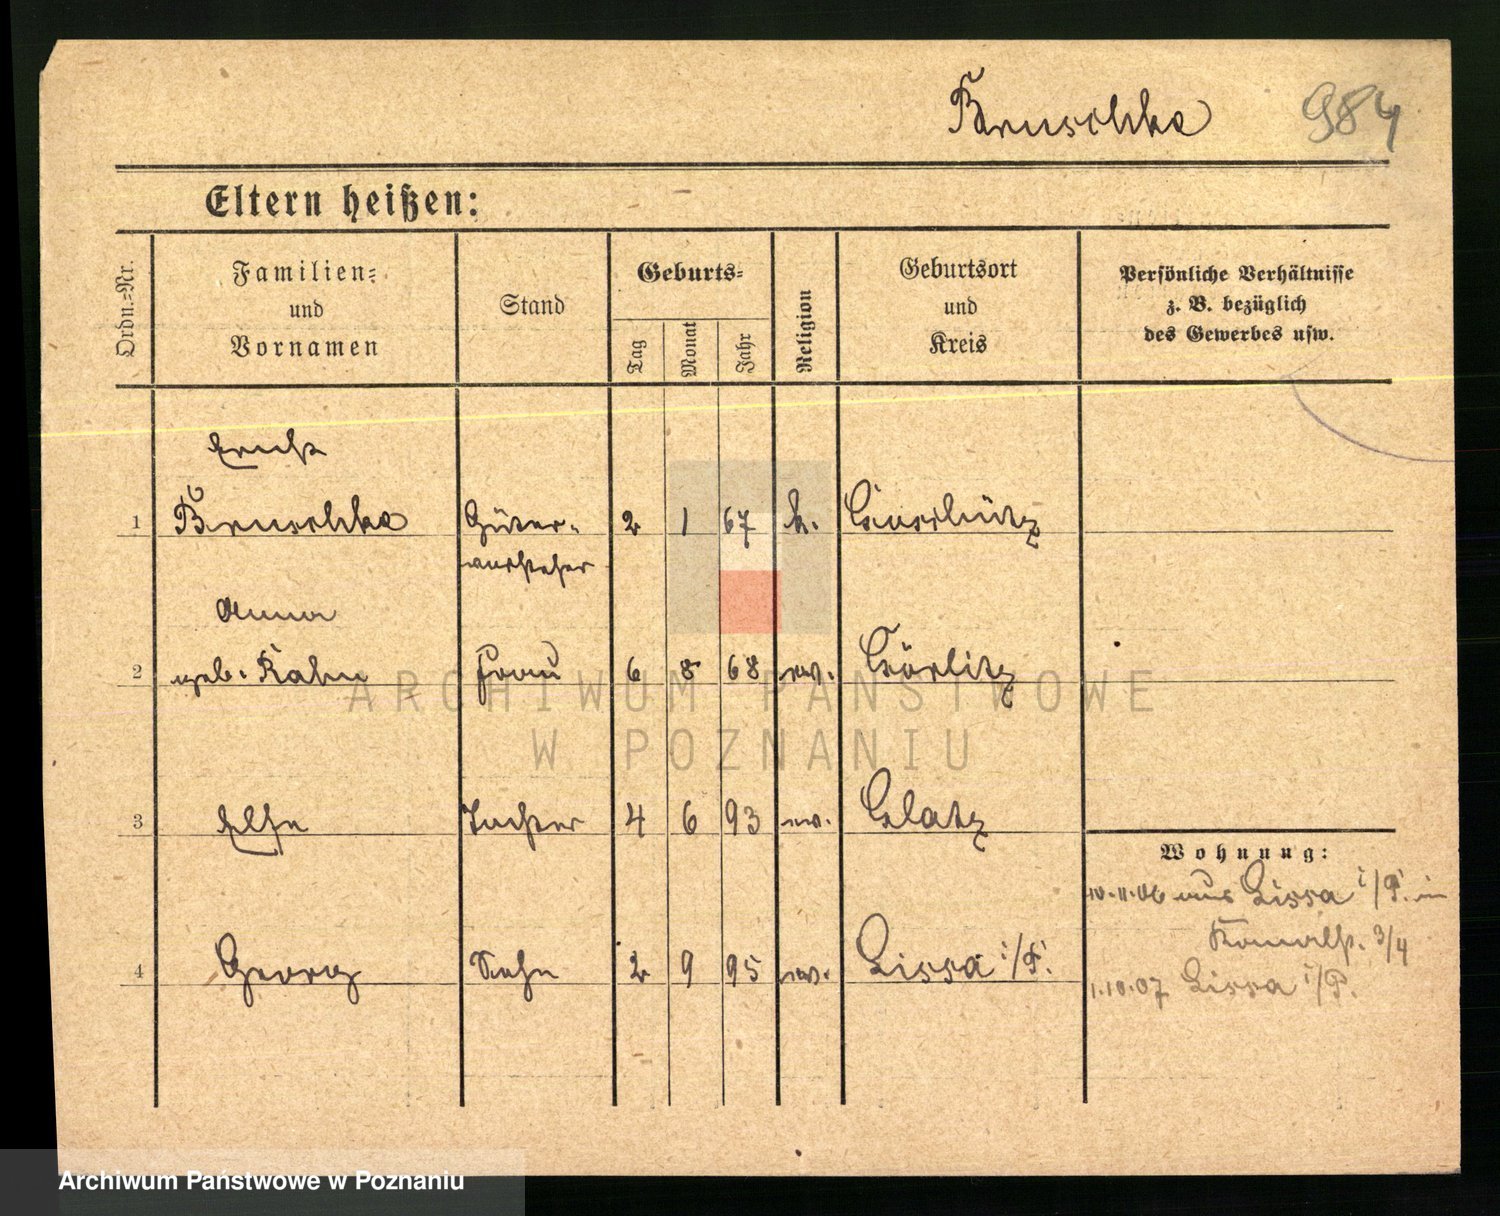 Bruschke 984
Eltern heißen:
Ordn.=Nr.
Familien=
und
Vornamen
Stand
Geburts=
Tag
Monat
Jahr
Religion
Geburtsort
und
Kreis
Persönliche Verhältnisse
z. B. bezüglich
des Gewerbes usw.
Erich
1 Bruschke Güter- 2 1 67 k.
vorsteher
Anna
2 geb. Frau 6 8 68 ev. Görlitz
3 Else Tochter 4 6 93 ev. Glatz
Wohnung:
10.11.06 aus Lissa i/P. in
3/4
4 Georg Sohn 2 9 95 ev. Lissa i/P.
1.10.07 Lissa i/P.
ARCHIWUM PAŃSTWOWE
W POZNANIU
Archiwum Państwowe w Poznaniu